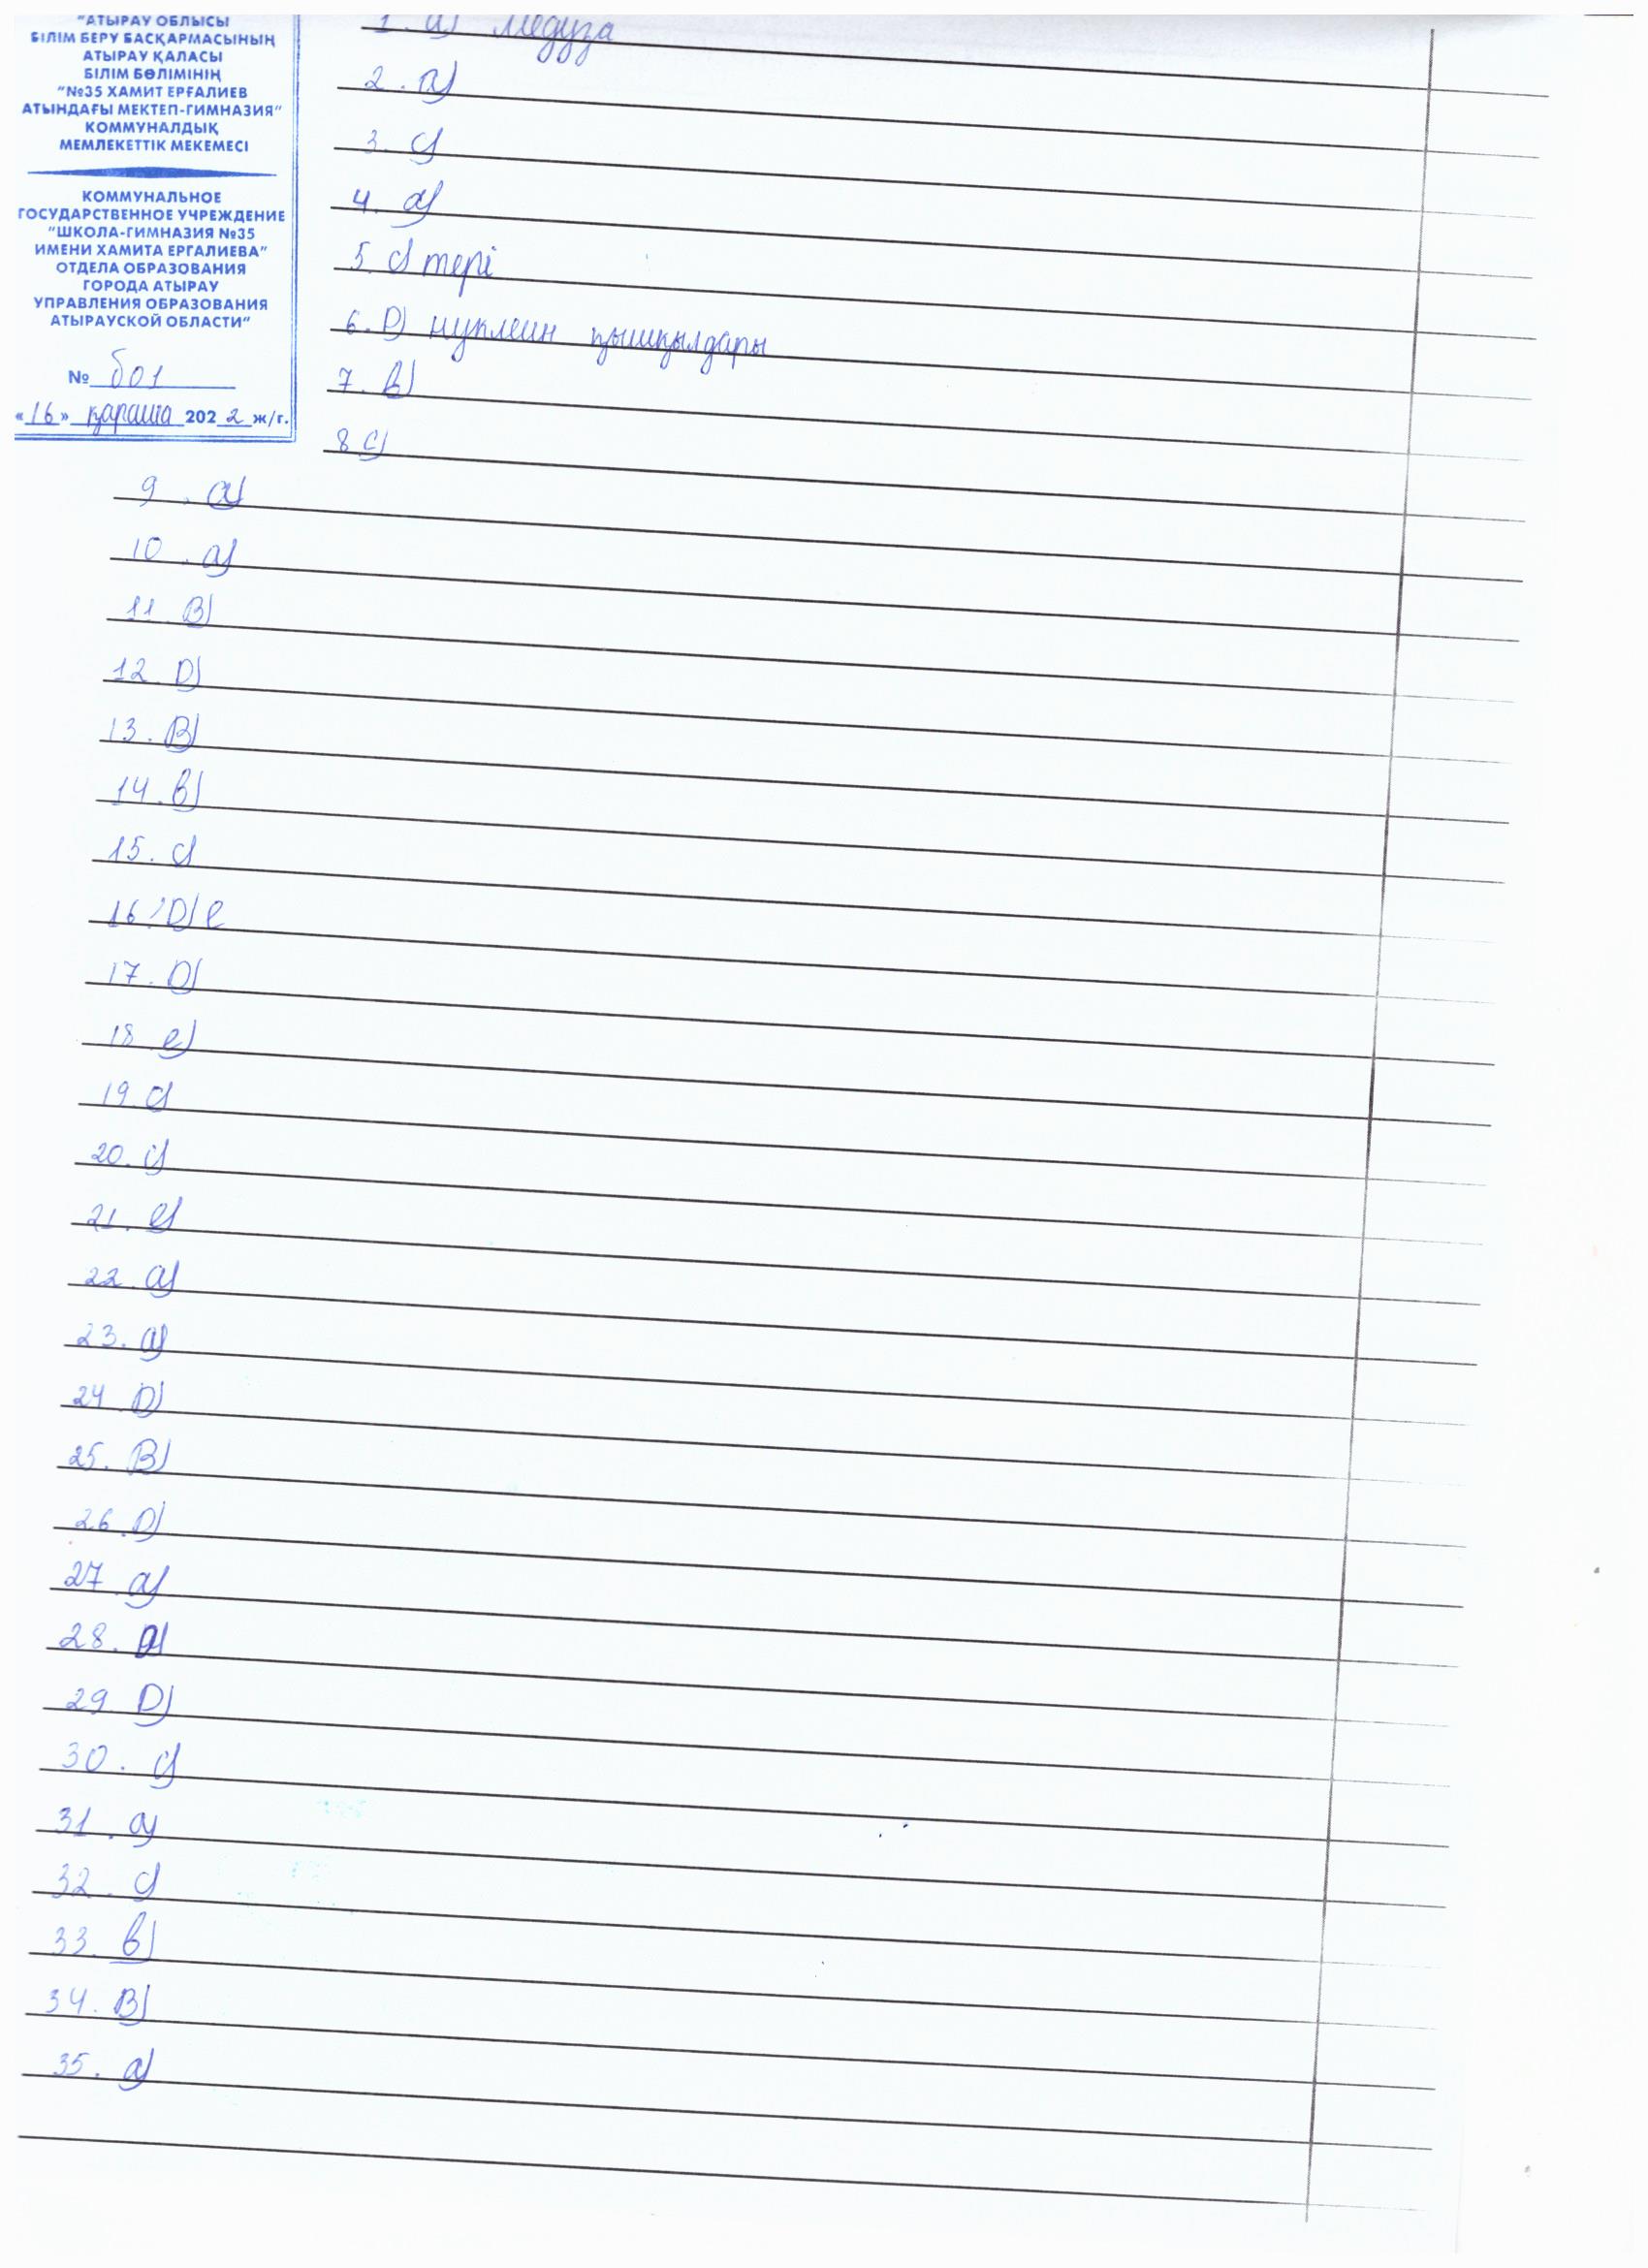 "АТЫРАУ ОБЛЫСЫ
БІЛІМ БЕРУ БАСҚАРМАСЫНЫҢ
АТЫРАУ ҚАЛАСЫ
БІЛІМ БӨЛІМІНІҢ
"№35 ХАМИТ ЕРҒАЛИЕВ
АТЫНДАҒЫ МЕКТЕП-ГИМНАЗИЯ"
КОММУНАЛДЫҚ
МЕМЛЕКЕТТІК МЕКЕМЕСІ
КОММУНАЛЬНОЕ
ГОСУДАРСТВЕННОЕ УЧРЕЖДЕНИЕ
"ШКОЛА-ГИМНАЗИЯ №35
ИМЕНИ ХАМИТА ЕРГАЛИЕВА"
ОТДЕЛА ОБРАЗОВАНИЯ
ГОРОДА АТЫРАУ
УПРАВЛЕНИЯ ОБРАЗОВАНИЯ
АТЫРАУСКОЙ ОБЛАСТИ"
№ б01
«16» қараша 2022 ж/г.
1. а) медуза
2. а)
3. с)
4. а)
5. с) тері
6. D) нуклеин қышқылдары
7. в)
8 с)
9. а)
10. а)
11. B)
12. D)
13. B)
14. в)
15. с)
16. D) е
17. D)
18 е)
19 с)
20. с)
21. е)
22. а)
23. а)
24 D)
25. B)
26. D)
27 а)
28.
29. D)
30. с)
31. а)
32. с)
33. в)
34. B)
35. а)